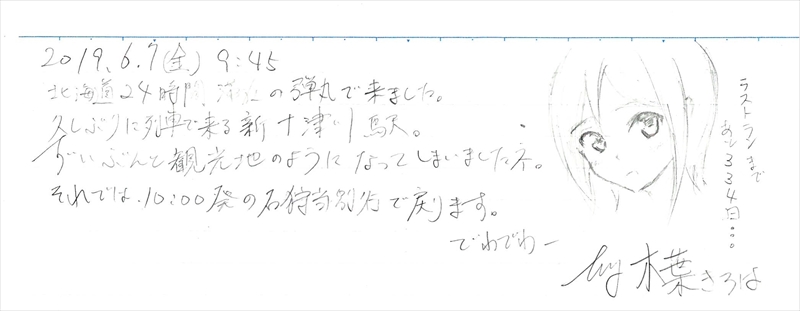 2019.6.7(金) 9:45
北海道24時間滞在の弾丸で来ました。
久しぶりに列車で来る新十津川駅。
ずいぶんと観光地のようになってしまいましたネ。
それでは、10:00発の石狩当別行で戻ります。
でわでわー
ラストランまで
あと334日...
by 木葉きろは